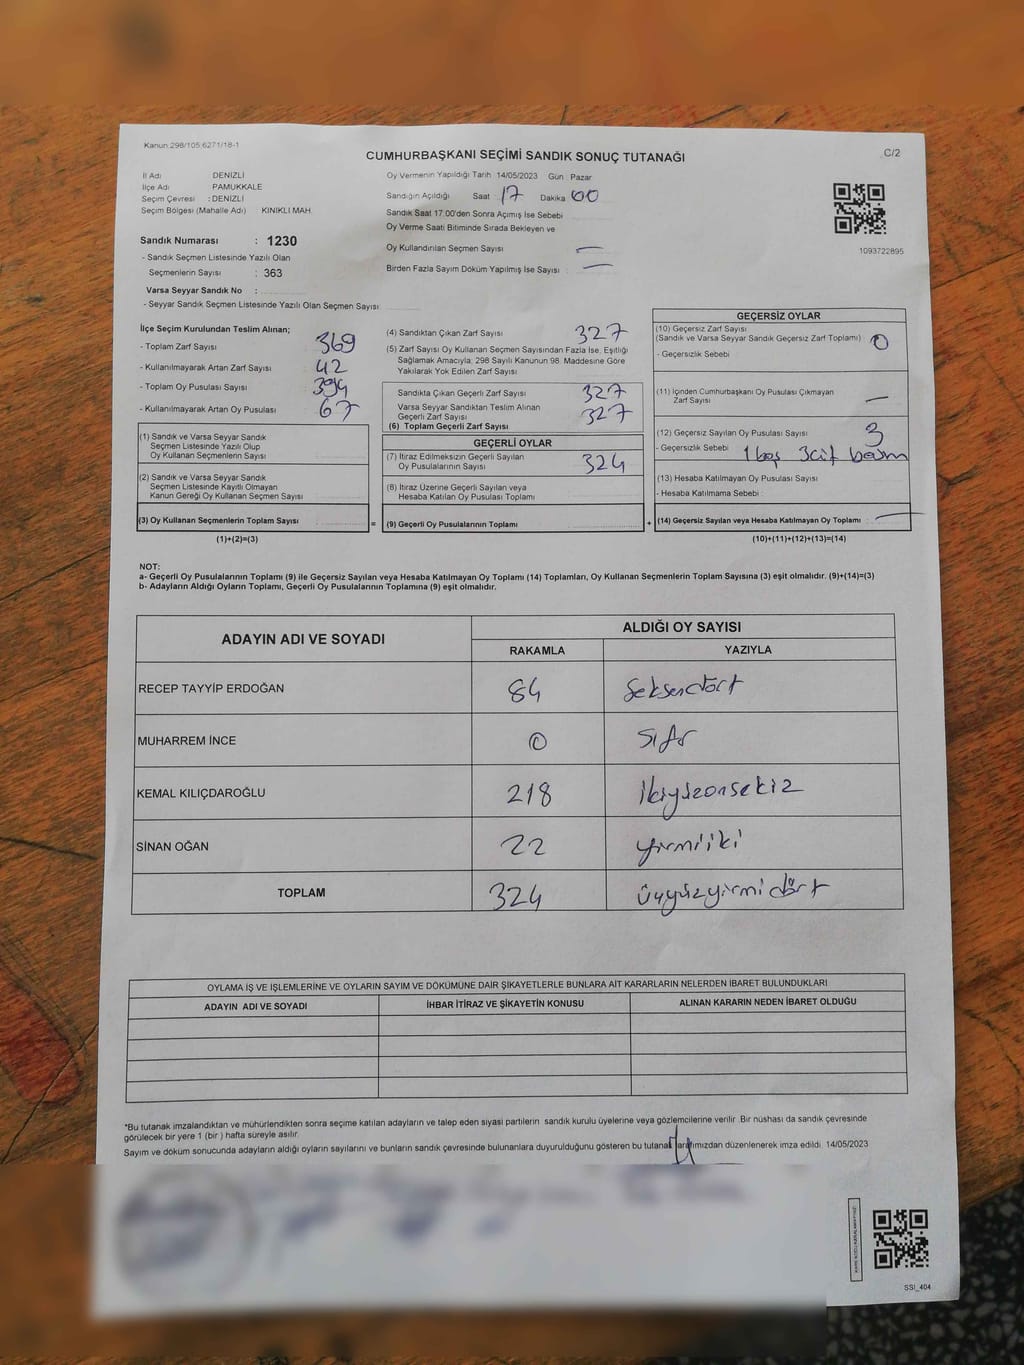 Kanun:298/105,6271/18-1
CUMHURBAŞKANI SEÇİMİ SANDIK SONUÇ TUTANAĞI
C/2
İl Adı DENİZLİ
İlçe Adı PAMUKKALE
Seçim Çevresi : DENİZLİ
Seçim Bölgesi (Mahalle Adı) KINIKLI MAH.
Sandık Numarası : 1230
- Sandık Seçmen Listesinde Yazılı Olan
Seçmenlerin Sayısı : 363
Varsa Seyyar Sandık No :
- Seyyar Sandık Seçmen Listesinde Yazılı Olan Seçmen Sayısı
Oy Vermenin Yapıldığı Tarih 14/05/2023 Gün : Pazar
Sandığın Açıldığı Saat 17 Dakika 00
Sandık Saat 17.00'den Sonra Açımış İse Sebebi
Oy Verme Saati Bitiminde Sırada Bekleyen ve
Oy Kullandırılan Seçmen Sayısı —
Birden Fazla Sayım Döküm Yapılmış İse Sayısı : —
1093722895
İlçe Seçim Kurulundan Teslim Alınan;
- Toplam Zarf Sayısı 369
- Kullanılmayarak Artan Zarf Sayısı 42
- Toplam Oy Pusulası Sayısı 394
- Kullanılmayarak Artan Oy Pusulası 67
(1) Sandık ve Varsa Seyyar Sandık
Seçmen Listesinde Yazılı Olup
Oy Kullanan Seçmenlerin Sayısı
(2) Sandık ve Varsa Seyyar Sandık
Seçmen Listesinde Kayıtlı Olmayan
Kanun Gereği Oy Kullanan Seçmen Sayısı
(3) Oy Kullanan Seçmenlerin Toplam Sayısı =
(1)+(2)=(3)
(4) Sandıktan Çıkan Zarf Sayısı 327
(5) Zarf Sayısı Oy Kullanan Seçmen Sayısından Fazla İse, Eşitliği
Sağlamak Amacıyla; 298 Sayılı Kanunun 98. Maddesine Göre
Yakılarak Yok Edilen Zarf Sayısı
Sandıkta Çıkan Geçerli Zarf Sayısı 327
Varsa Seyyar Sandıktan Teslim Alınan
Geçerli Zarf Sayısı 327
(6) Toplam Geçerli Zarf Sayısı
GEÇERLİ OYLAR
(7) İtiraz Edilmeksizin Geçerli Sayılan
Oy Pusulalarının Sayısı 324
(8) İtiraz Üzerine Geçerli Sayılan veya
Hesaba Katılan Oy Pusulası Toplamı
(9) Geçerli Oy Pusulalarının Toplamı +
GEÇERSİZ OYLAR
(10) Geçersiz Zarf Sayısı
(Sandık ve Varsa Seyyar Sandık Geçersiz Zarf Toplamı) 0
- Geçersizlik Sebebi
(11) İçinden Cumhurbaşkanı Oy Pusulası Çıkmayan
Zarf Sayısı —
(12) Geçersiz Sayılan Oy Pusulası Sayısı 3
- Geçersizlik Sebebi 1 boş 3cift
(13) Hesaba Katılmayan Oy Pusulası Sayısı
- Hesaba Katılmama Sebebi :
(14) Geçersiz Sayılan veya Hesaba Katılmayan Oy Toplamı : —
(10)+(11)+(12)+(13)=(14)
NOT:
a- Geçerli Oy Pusulalarının Toplamı (9) ile Geçersiz Sayılan veya Hesaba Katılmayan Oy Toplamı (14) Toplamları, Oy Kullanan Seçmenlerin Toplam Sayısına (3) eşit olmalıdır. (9)+(14)=(3)
b- Adayların Aldığı Oyların Toplamı, Geçerli Oy Pusulalarının Toplamına (9) eşit olmalıdır.
ADAYIN ADI VE SOYADI
ALDIĞI OY SAYISI
RAKAMLA YAZIYLA
RECEP TAYYİP ERDOĞAN 84 Seksendört
MUHARREM İNCE 0 Sıfır
KEMAL KILIÇDAROĞLU 218 ikiyüzonsekiz
SİNAN OĞAN 22 yirmiiki
TOPLAM 324 üçyüzyirmidört
OYLAMA İŞ VE İŞLEMLERİNE VE OYLARIN SAYIM VE DÖKÜMÜNE DAİR ŞİKAYETLERLE BUNLARA AİT KARARLARIN NELERDEN İBARET BULUNDUKLARI
ADAYIN ADI VE SOYADI İHBAR İTİRAZ VE ŞİKAYETİN KONUSU ALINAN KARARIN NEDEN İBARET OLDUĞU
*Bu tutanak imzalandıktan ve mühürlendikten sonra seçime katılan adayların ve talep eden siyasi partilerin sandık kurulu üyelerine veya gözlemcilerine verilir. Bir nüshası da sandık çevresinde
görülecek bir yere 1 (bir ) hafta süreyle asılır.
Sayım ve döküm sonucunda adayların aldığı oyların sayılarını ve bunların sandık çevresinde bulunanlara duyurulduğunu gösteren bu tutanak tarafımızdan düzenlenerek imza edildi. 14/05/2023
SSI_404